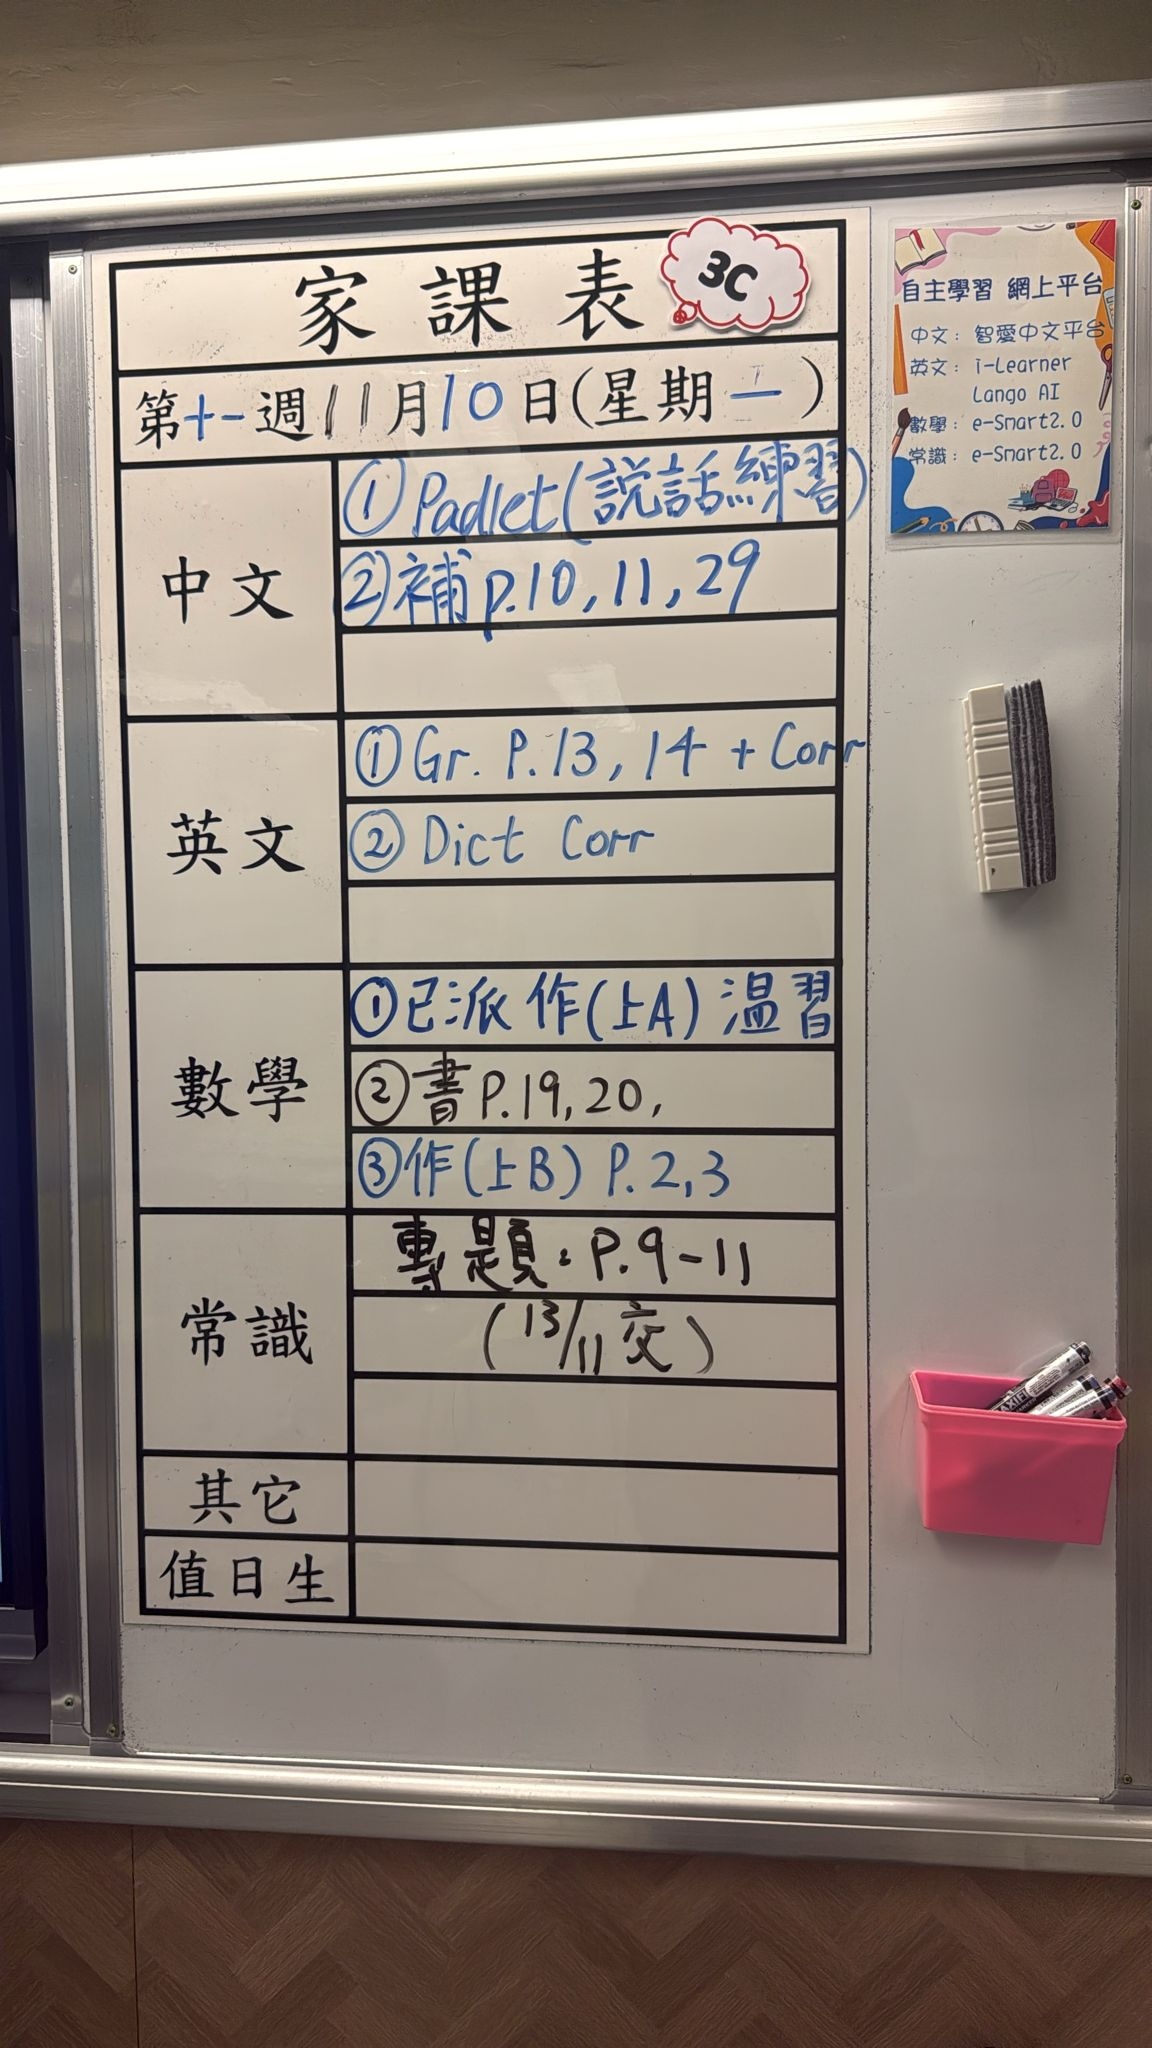 家課表
3C
第十一週11月10日(星期一)
中文
①Padlet(説話練習)
②補p.10,11,29
英文
①Gr. P.13,14 + Corr
②Dict Corr
數學
①已派作(上A)溫習
②書P.19,20,
③作(上B) P.2,3
常識
專題:P.9-11
(13/11交)
其它
值日生
自主學習 網上平台
中文:智愛中文平台
英文:i-Learner
Lango AI
數學:e-Smart2.0
常識:e-Smart2.0